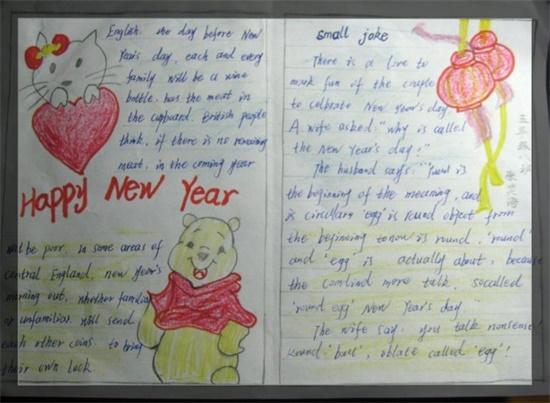 English. the day before New
Year's day, each and every
family will be a wine
bottle. has the meat in
the cupboard. British people
think, if there is no remaining
meat, in the coming year
Happy New Year
will be poor. in some areas of
central England, new year's
morning out, whether familiar
or unfamiliar will send
each other coins. to bring
their own luck.
small joke
There is a love to
mark fun if the couple
to celbrate New Year's day
A wife asked: "why is called
the New Year's day?"
The husband says: is
the beginning of the meaning, and
is circulars 'egg' is round object from
the beginning to now is round, 'round'
and 'egg' is actually about, because
the more talk, socalled
'round egg' New Year's day.
The wife say: you talk nonsense!
round 'ball', oblate called 'egg'!
五年级八班
张